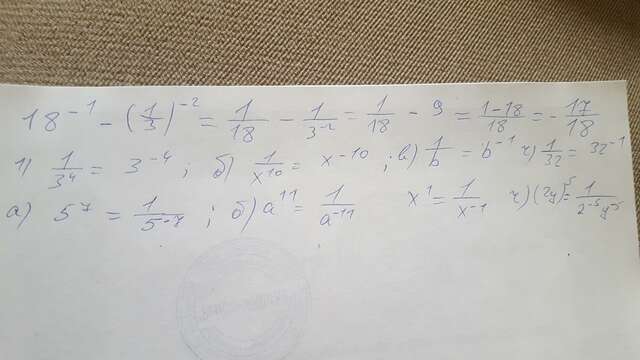 18⁻¹ - (1/3)⁻² = 1/18 - 1/3⁻² = 1/18 - 9 = (1-18)/18 = - 17/18
1) 1/3⁴ = 3⁻⁴ ; б) 1/x¹⁰ = x⁻¹⁰ ; в) 1/b = b⁻¹ г) 1/32 = 32⁻¹
а) 5⁷ = 1/5⁻⁷ ; б) a¹¹ = 1/a⁻¹¹ x¹ = 1/x⁻¹ г) (2y)⁵ = 1/2⁻⁵y⁻⁵